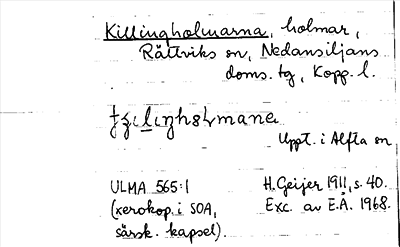 Killingholmarna, holmar,
Rättviks sn, Nedansiljans
doms. tg, Kopp. l.
Uppt. i Alfta sn
ULMA 565:1
(xerokop. i SOA,
särsk. kapsel).
H. Geijer 1911, s. 40.
Exc. av E.Å. 1968.